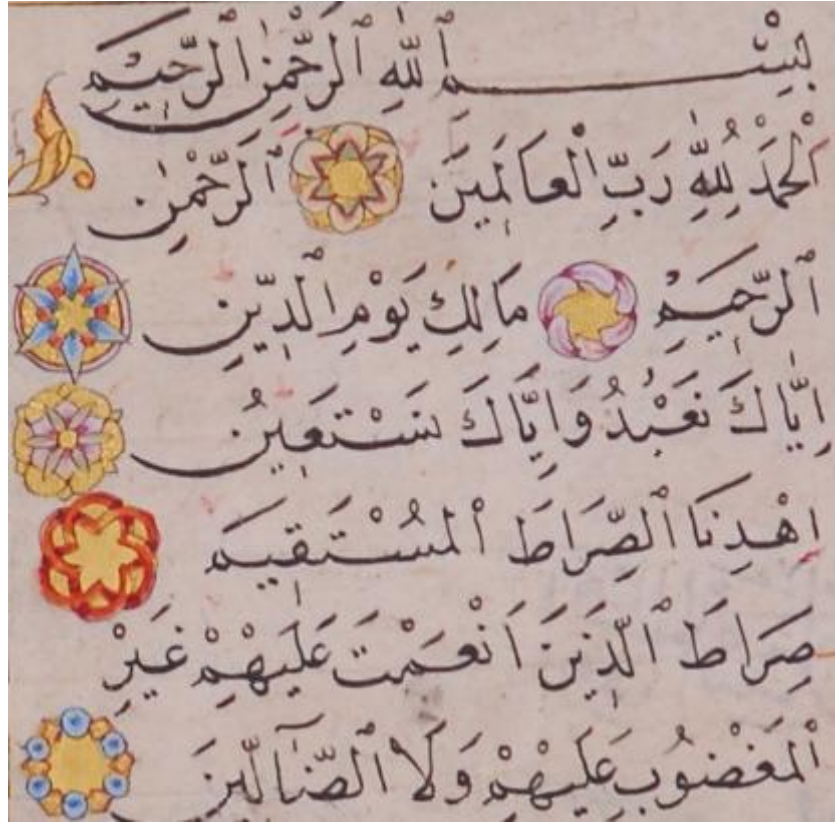 بِسْمِ ٱللَّهِ ٱلرَّحْمٰنِ ٱلرَّحِيمِ
اَلْحَمْدُ لِلّٰهِ رَبِّ ٱلْعَالَمِينَ ٱلرَّحْمٰنِ
ٱلرَّحِيمِ مَالِكِ يَوْمِ ٱلدِّينِ
اِيَّاكَ نَعْبُدُ وَاِيَّاكَ نَسْتَعِينُ
اِهْدِنَا ٱلصِّرَاطَ ٱلْمُسْتَقِيمَ
صِرَاطَ ٱلَّذِينَ اَنْعَمْتَ عَلَيْهِمْ غَيْرِ
ٱلْمَغْضُوبِ عَلَيْهِمْ وَلَا ٱلضَّآلِّينَ